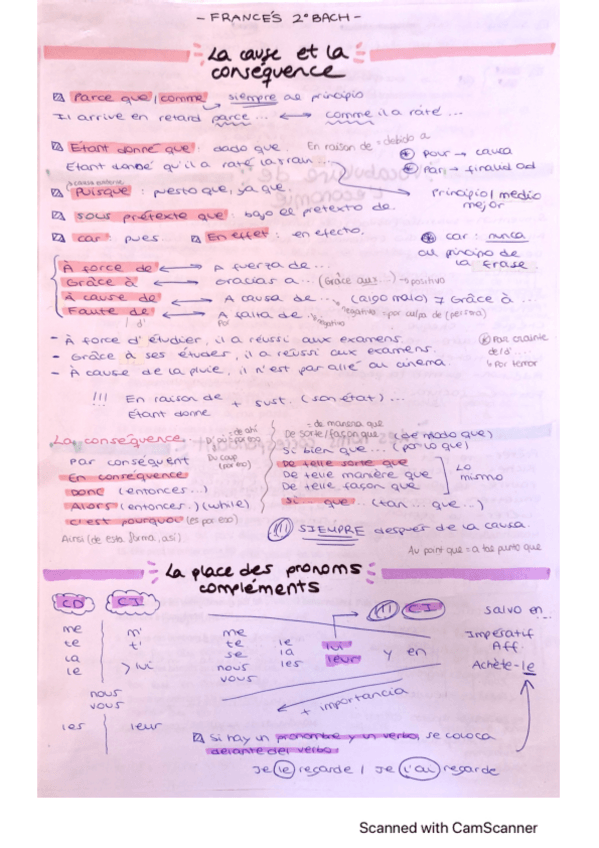 - FRANCÉS 2º BACH -
La cause et la
conséquence
Parce que / comme → siempre al principio
Il arrive en retard parce ... ↔ comme il a raté ...
Étant donné que : dado que. En raison de = debido a
Étant donné qu'il a raté la train ...
+ Pour → causa
+ Par → finalidad
à cause antérieure
Puisque : puesto que, ya que. Principio / medio
mejor
Sous prétexte que : bajo el pretexto de.
car : pues En effet : en efecto.
car : nunca
au principio de
la frase.
À force de ↔ A fuerza de ...
Grâce à ↔ Gracias a ... (Grâce aux ...) → positivo
À cause de ↔ A causa de ... (algo malo) ≠ Grâce à ...
negativo = por culpa de (persona)
Faute de ↔ A falta de ...
/ d'
Por
negativo
- À force d'étudier, il a réussi aux examens.
- Grâce à ses études, il a réussi aux examens.
- À cause de la pluie, il n'est par allé au cinema..
Par crainte
de / d' ...
↳ Por temor
!!! En raison de + sust. (son état) ...
Étant donne
La conséquence
= de ahí
D'où = por eso
Par conséquent
Du coup
(por tso)
En conséquence
Donc (entonces ...)
Alors (entonces..) (while)
c'est pourquoi (es por eso)
Ainsi (de esta forma, así)
= de manera que
De sorte / façon que (de modo que)
Si bien que ... (por lo que)
De telle sorte que
De telle manière que
De telle façon que
Lo
mismo
Si ... que ... (tan ... que ...)
(!!) SIEMPRE después de la causa.
Au point que = a tas punto que
La place des pronoms
compléments
CD CI
me m'
te t'
la
le > lui
nous
vous
les leur
me
te le lui
se la leur y en
nous les
vous
(!!) CI
+ importancia
salvo en ...
Impératif
Aff.
Achète-le
Si hay un pronombre y un verbo se coloca
delante del verbo
Je le regarde / Je l'ai regarde
Scanned with CamScanner